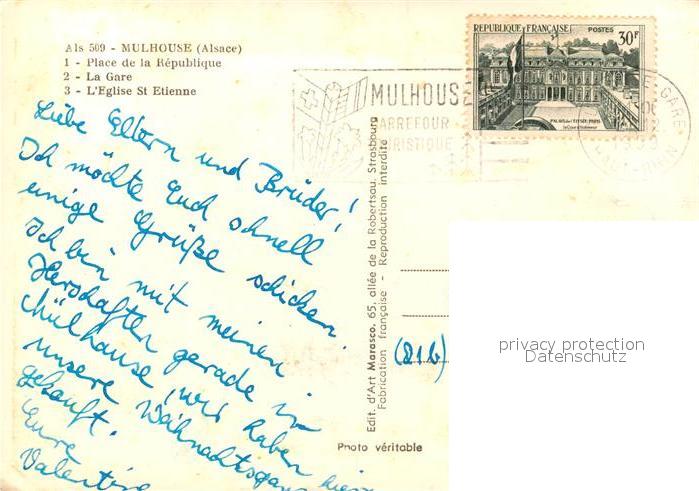 Als 509 - MULHOUSE (Alsace)
1 - Place de la République
2 - La Gare
3 - L'Eglise St Etienne
REPUBLIQUE FRANÇAISE POSTES
30F
PALAIS DE L'ELYSÉE PARIS
MULHOUSE
CARREFOUR
TOURISTIQUE
GARE
Liebe Eltern und Brüder!
Ich möchte Euch schnell
einige Grüße schicken.
Ich bin mit meinen
Herschafter gerade in
Mülhause, wir haben hier
unsere Weihnachtsgans
gekauft.
Eure
Valentine
Edit. d'Art Marasco. 65, allée de la Robertsau, Strasbourg
Fabrication française - Reproduction interdite
(21b)
Photo véritable
privacy protection
Datenschutz